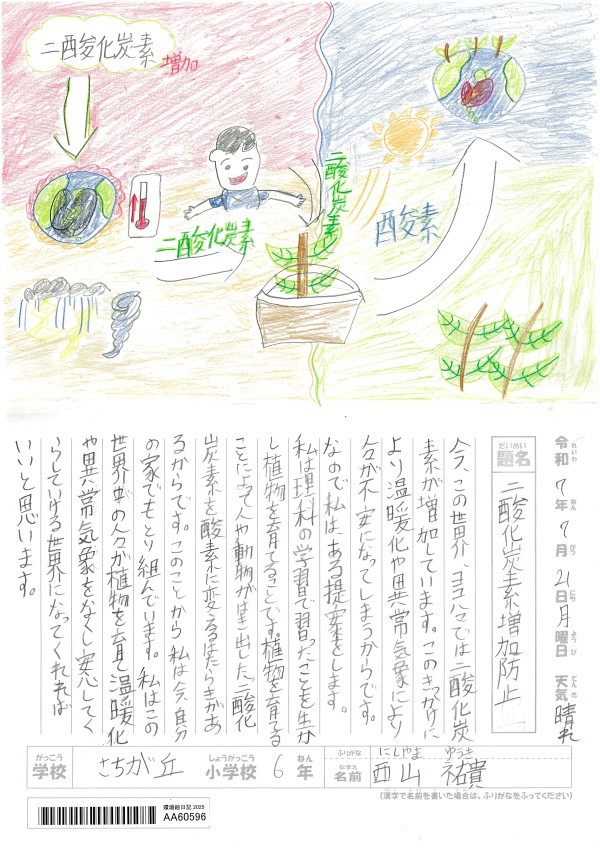 二酸化炭素
増加
二酸化炭素
二酸化炭素
酸素
令和7年7月21日月曜日 天気 晴れ
れいわ ねん がつ にち ようび てんき
だいめい
題名
二酸化炭素増加防止
今、この世界、ヨコハマでは二酸化炭
素が増加しています。このきっかけに
より温暖化や異常気象により
人々が不安になってしまうからです。
なので私は、ある提案をします。
私は理科の学習で習ったことを生か
し植物を育てることです。植物を育てる
ことによって人や動物がはき出した二酸化
炭素を酸素に変えるはたらきがあ
るからです。このことから私は今、自分
の家でもとり組んでいます。私はこの
世界中の人々が植物を育て温暖化
や異常気象をなくし安心してく
らしていける世界になってくれれば
いいと思います。
がっこう しょうがっこう ねん
学校 さちが丘 小学校 6年
ふりがな にしやま ゆうき
なまえ
名前 西山 祐貴
(漢字で名前を書いた場合は、ふりがなをふってください)
環境絵日記 2025
AA60596